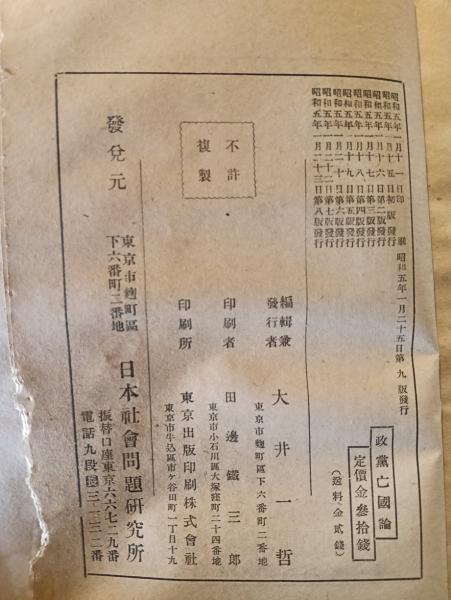 政黨亡國論
定價金參拾錢
(送料金貳錢)
昭和五年一月十一日印刷
昭和五年一月十五日初版發行
昭和五年一月十六日第二版發行
昭和五年一月十七日第三版發行
昭和五年一月十八日第四版發行
昭和五年一月十九日第五版發行
昭和五年一月二十日第六版發行
昭和五年一月二十二日第七版發行
昭和五年一月二十三日第八版發行
昭和五年一月二十五日第九版發行
不許
複製
編輯兼
發行者
大井一哲
東京市麴町區下六番町二番地
印刷者
田邊鐵三郎
東京市小石川區大塚窪町二十四番地
印刷所
東京出版印刷株式會社
東京市牛込區市ケ谷田町二丁目十九
發兌元
東京市麴町區
下六番町二番地
日本社會問題硏究所
振替口座東京六六七二九番
電話九段